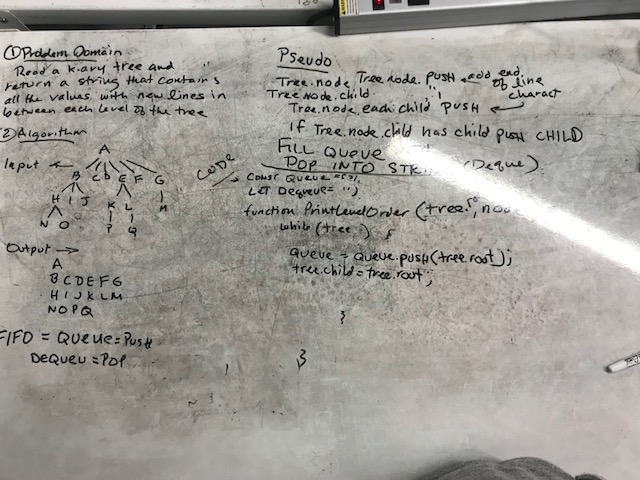 ① Problem Domain
Read a k-ary tree and
return a string that contains
all the values with new lines in
between each level of the tree
② Algorithm
Input ←
A
B C D E F G
H I J K L M
N O P Q
Output →
A
B C D E F G
H I J K L M
N O P Q
FIFO = Queue = Push
DEQueu = POP
Pseudo
Tree.node Tree.node.push ← add end of line charact
Tree.node.child
Tree.node.each child PUSH ←
If Tree.node.child has child push CHILD
FILL Queue
POP INTO (Deque)
CODE
Const Queue =
Let Dequeue= '';
function PrintLevelOrder (tree.
while (tree ) {
queue = queue.push(tree.root);
tree.child = tree.root;
}
}